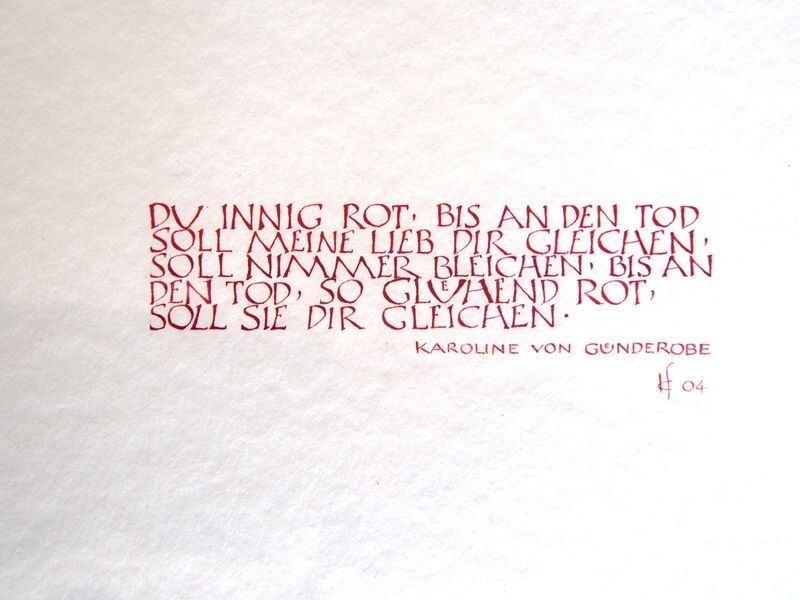 DU INNIG ROT, BIS AN DEN TOD
SOLL MEINE LIEB DIR GLEICHEN,
SOLL NIMMER BLEICHEN, BIS AN
DEN TOD, SO GLUEHEND ROT,
SOLL SIE DIR GLEICHEN.
KAROLINE VON GUENDEROBE
04